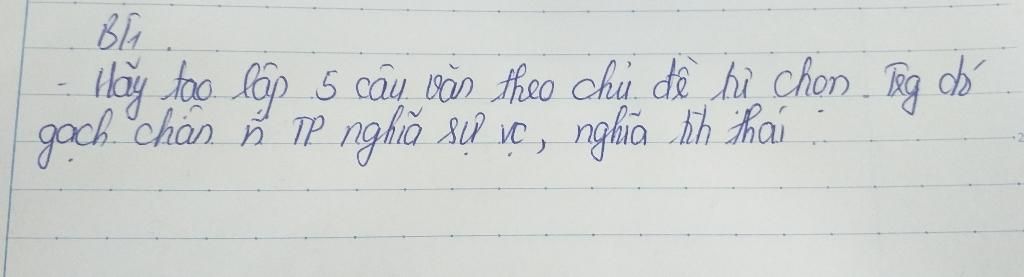 BT1.
- Hãy tạo lập 5 câu văn theo chủ đề tự chọn. Trg đó
gạch chân n~ TP nghĩa sự vc, nghĩa tìh thái.